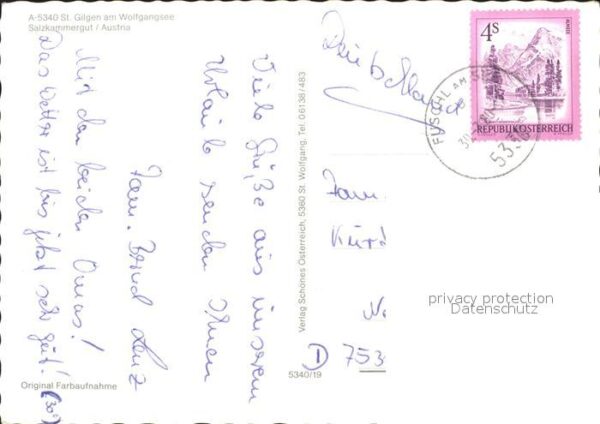 A-5340 St. Gilgen am Wolfgangsee
Salzkammergut / Austria
Viele Grüße aus unserem
Urlaub senden Ihnen
Fam. Bernd Lenz
Mit den beiden Omas!
Das Wetter ist bis jetzt sehr gut! (30°)
Original Farbaufnahme
Verlag Schönes Österreich, 5360 St. Wolfgang, Tel. 06138/483
5340/19
Deutschland
4S
ALMSEE
REPUBLIK ÖSTERREICH
FUSCHL AM
53
Fam.
Kurt
N.
D 753
privacy protection
Datenschutz